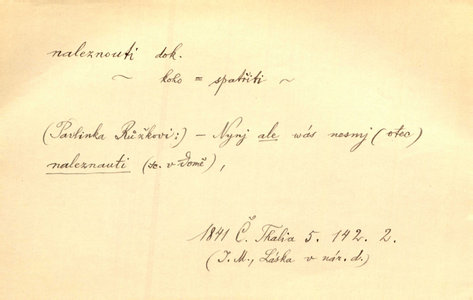 naleznouti dok.
~ koho = spatřiti ~
(Pavlinka Růžkovi:) – Nynj ale wás nesmj (otec)
naleznauti (sc. v domě),
1841 Č. Thalia 5. 142. 2.
(J. M., Láska v nár. d.)